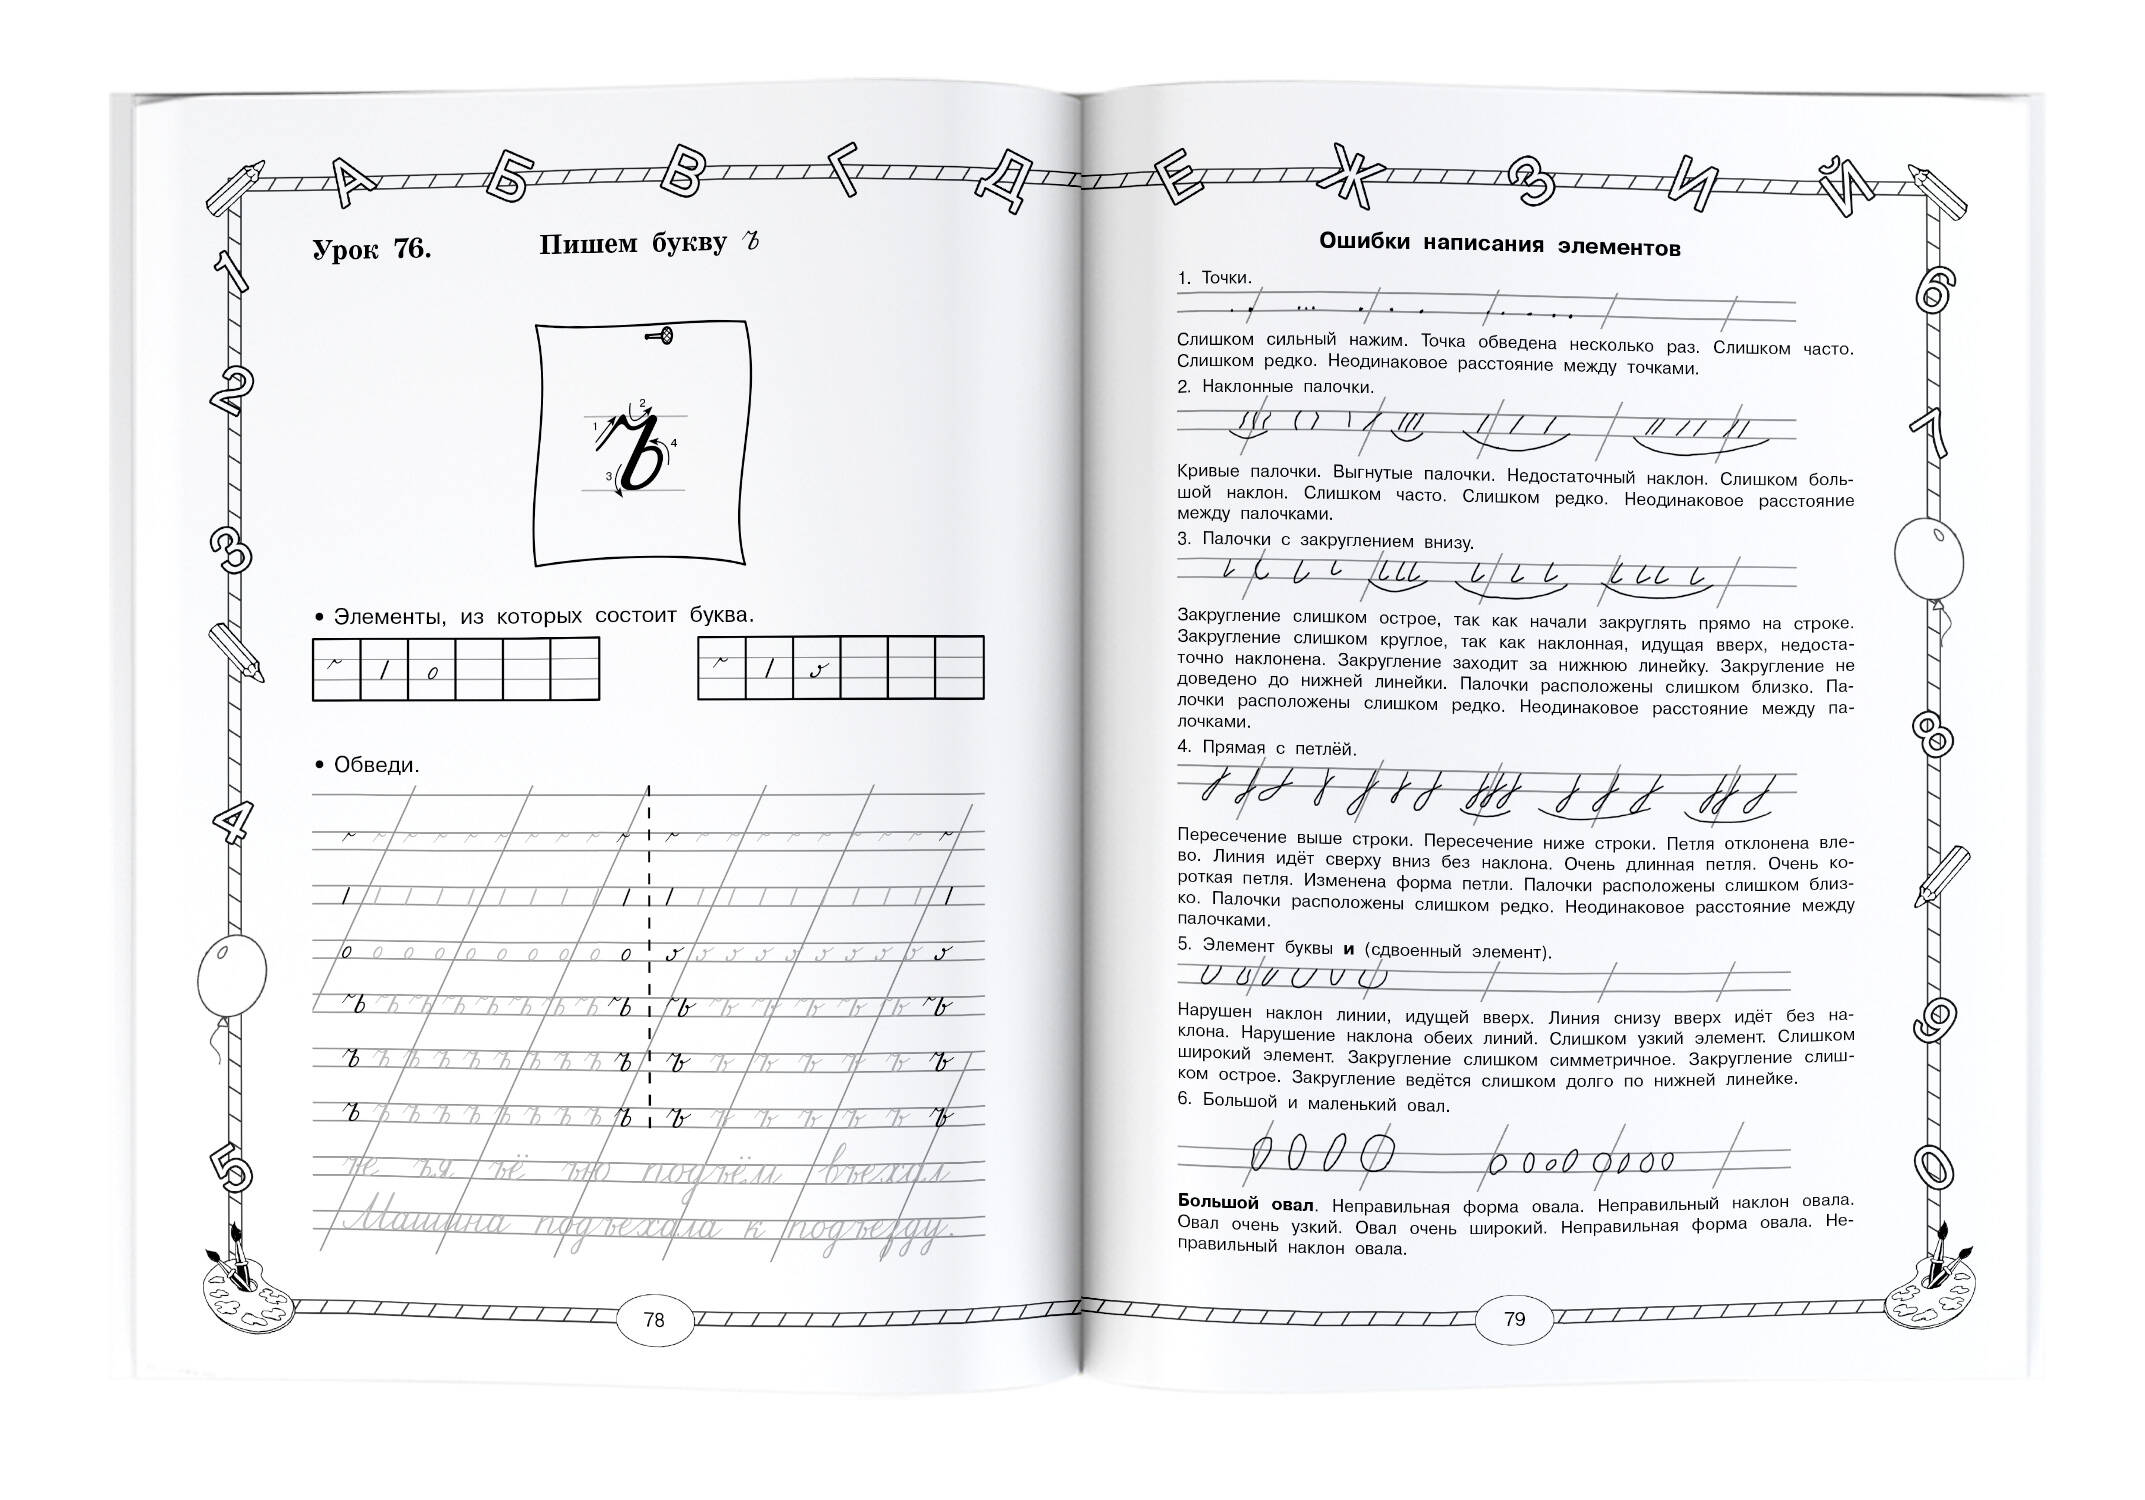 А Б В Г Д Е Ж З И Й
Урок 76. Пишем букву ъ
1 2 3 4
ъ
• Элементы, из которых состоит буква.
• Обведи.
ъ ъ ъ ъ ъ ъ ъ ъ ъ ъ ъ ъ ъ ъ ъ ъ ъ
ъ ъ ъ ъ ъ ъ ъ ъ ъ ъ ъ ъ ъ ъ ъ ъ ъ
ъ ъ ъ ъ ъ ъ ъ ъ ъ ъ ъ ъ ъ ъ ъ ъ ъ
ъе ъя ъё ъю подъём въехал
Машина подъехала к подъезду.
1
2
3
4
5
78
Ошибки написания элементов
1. Точки.
Слишком сильный нажим. Точка обведена несколько раз. Слишком часто.
Слишком редко. Неодинаковое расстояние между точками.
2. Наклонные палочки.
Кривые палочки. Выгнутые палочки. Недостаточный наклон. Слишком боль-
шой наклон. Слишком часто. Слишком редко. Неодинаковое расстояние
между палочками.
3. Палочки с закруглением внизу.
Закругление слишком острое, так как начали закруглять прямо на строке.
Закругление слишком круглое, так как наклонная, идущая вверх, недоста-
точно наклонена. Закругление заходит за нижнюю линейку. Закругление не
доведено до нижней линейки. Палочки расположены слишком близко. Па-
лочки расположены слишком редко. Неодинаковое расстояние между па-
лочками.
4. Прямая с петлёй.
Пересечение выше строки. Пересечение ниже строки. Петля отклонена вле-
во. Линия идёт сверху вниз без наклона. Очень длинная петля. Очень ко-
роткая петля. Изменена форма петли. Палочки расположены слишком близ-
ко. Палочки расположены слишком редко. Неодинаковое расстояние между
палочками.
5. Элемент буквы и (сдвоенный элемент).
Нарушен наклон линии, идущей вверх. Линия снизу вверх идёт без на-
клона. Нарушение наклона обеих линий. Слишком узкий элемент. Слишком
широкий элемент. Закругление слишком симметричное. Закругление слиш-
ком острое. Закругление ведётся слишком долго по нижней линейке.
6. Большой и маленький овал.
Большой овал. Неправильная форма овала. Неправильный наклон овала.
Овал очень узкий. Овал очень широкий. Неправильная форма овала. Не-
правильный наклон овала.
6
7
8
9
0
79